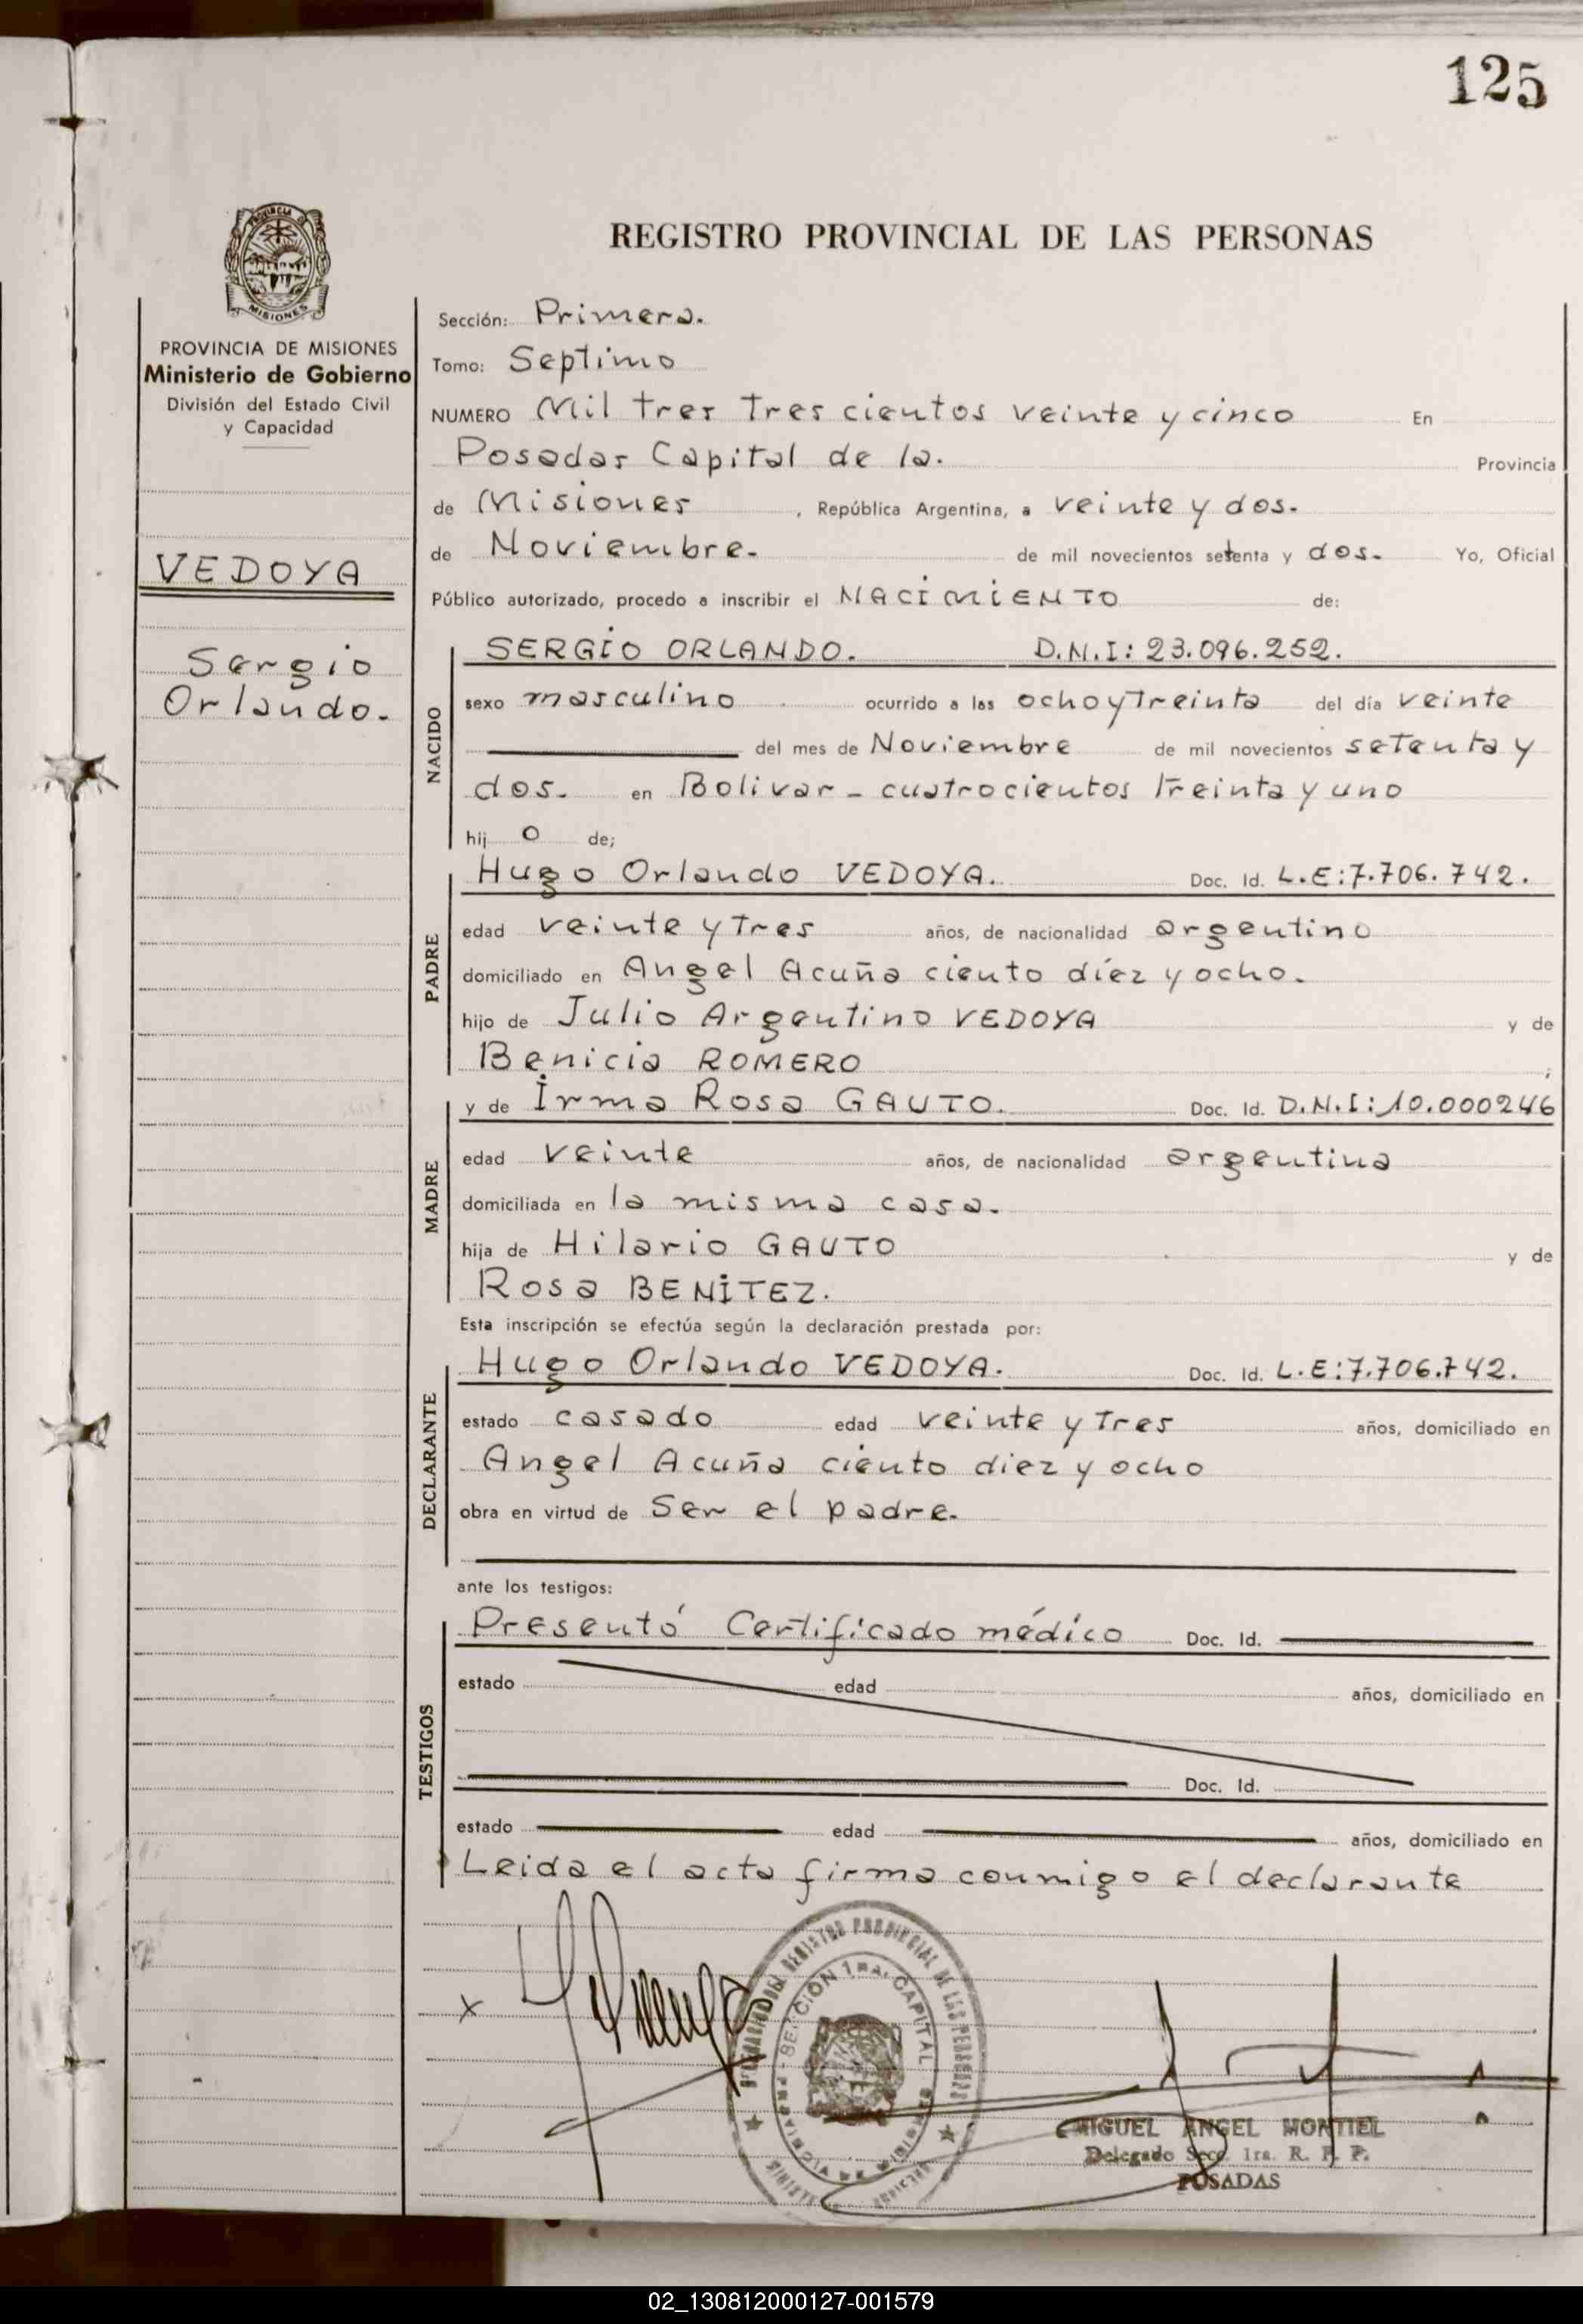 125
REGISTRO PROVINCIAL DE LAS PERSONAS
PROVINCIA DE MISIONES
Ministerio de Gobierno
División del Estado Civil
y Capacidad
VEDOYA
Sergio
Orlando.
Sección: Primera.
Tomo: Septimo
NUMERO Mil tres Tres cientos veinte y cinco En
Posadas Capital de la. Provincia
de Misiones, República Argentina, a veinte y dos.
de Noviembre. de mil novecientos setenta y dos. Yo, Oficial
Público autorizado, procedo a inscribir el NACIMIENTO de:
NACIDO
SERGIO ORLANDO. D.N.I: 23.096.252.
sexo masculino ocurrido a las ocho y Treinta del día veinte
del mes de Noviembre de mil novecientos setenta y
dos. en Bolivar - cuatrocientos treinta y uno
hij o de;
PADRE
Hugo Orlando VEDOYA. Doc. Id. L.E:7.706.742.
edad veinte y Tres años, de nacionalidad argentino
domiciliado en Angel Acuña ciento díez y ocho.
hijo de Julio Argentino VEDOYA y de
Benicia ROMERO ;
MADRE
y de Irma Rosa GAUTO. Doc. Id. D.N.I:10.000246
edad veinte años, de nacionalidad argentina
domiciliada en la misma casa.
hija de Hilario GAUTO y de
Rosa BENITEZ.
Esta inscripción se efectúa según la declaración prestada por:
DECLARANTE
Hugo Orlando VEDOYA. Doc. Id. L.E:7.706.742.
estado casado edad veinte y Tres años, domiciliado en
Angel Acuña ciento diez y ocho
obra en virtud de Ser el padre.
ante los testigos:
TESTIGOS
Presentó Certificado médico Doc. Id.
estado edad años, domiciliado en
Doc. Id.
estado edad años, domiciliado en
Leida el acta firma conmigo el declarante
REGISTRO PROVINCIAL DE LAS PERSONAS
SECCION 1ra. CAPITAL
MIGUEL ANGEL MONTIEL
Delegado Secc. 1ra. R. P. P.
POSADAS
02_130812000127-001579